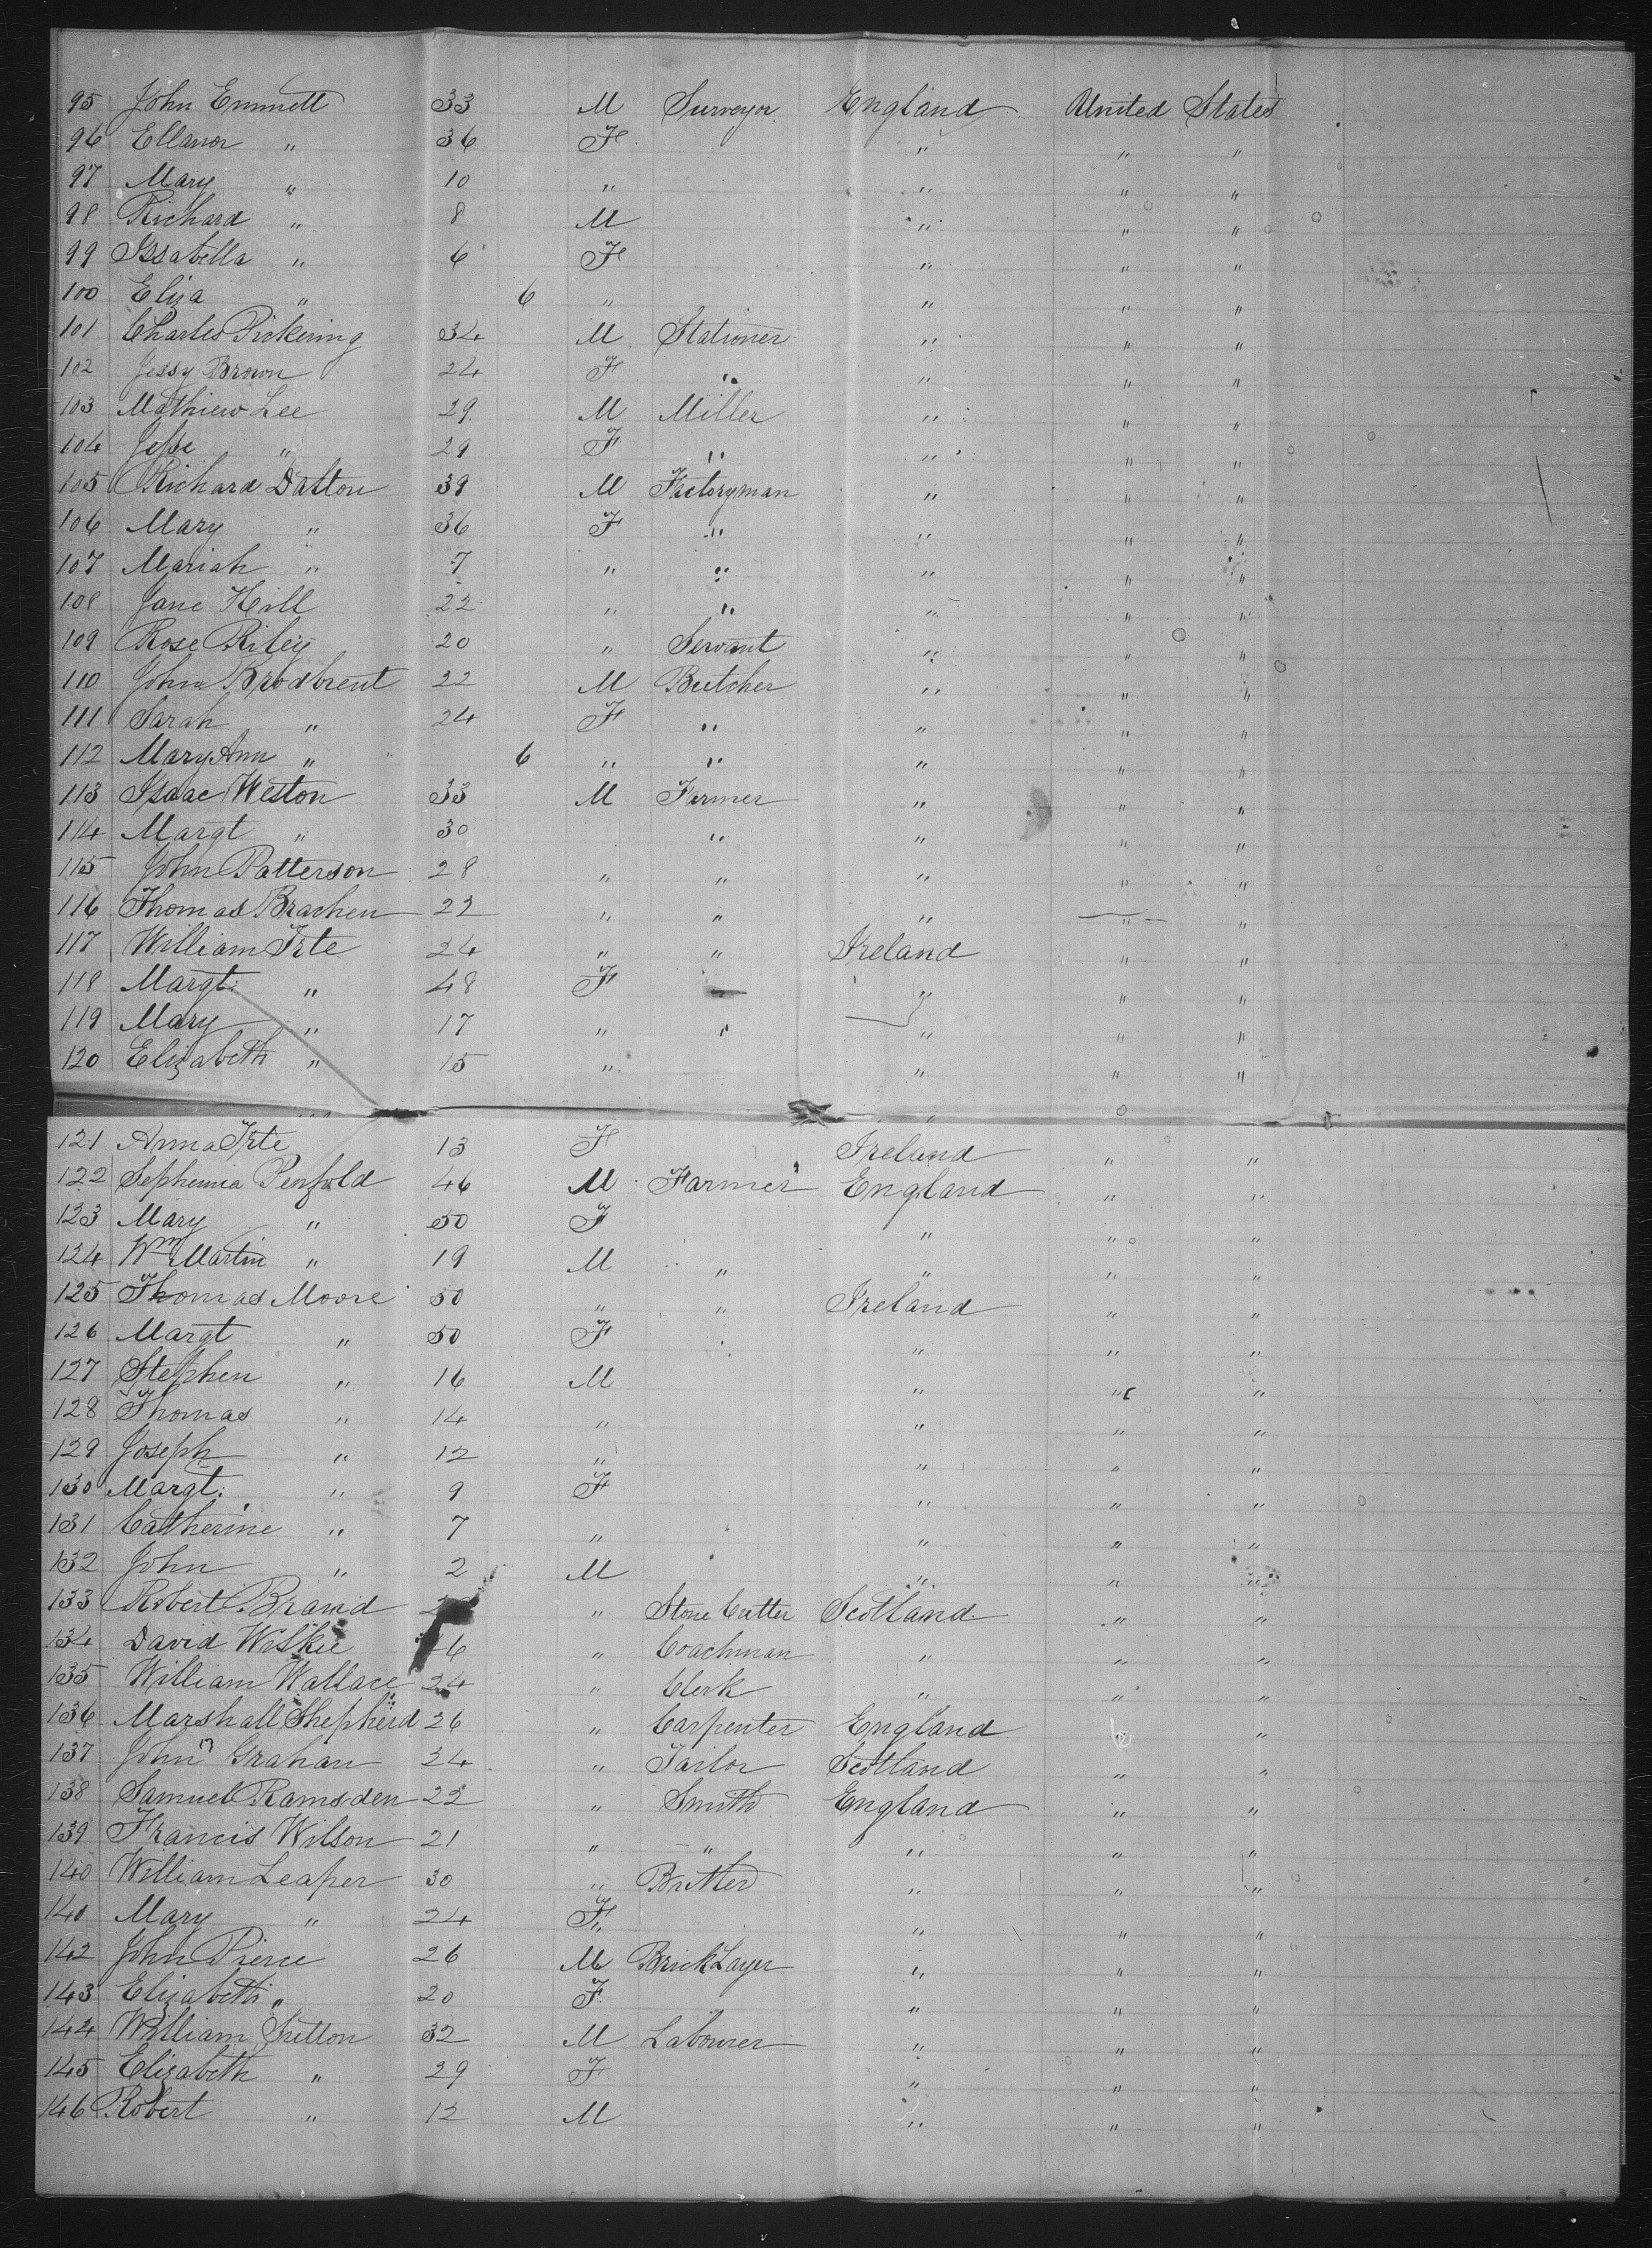 95 John Emmett 33 M Surveyor England United States
96 Ellanor " 36 F " " "
97 Mary " 10 " " " "
98 Richard " 8 M " " "
99 Issabella " 6 F " " "
100 Eliza " 6 " " " "
101 Charles Pickering 34 M Stationer " " "
102 Jessy Brown 24 F " " " "
103 Mathiew Lee 29 M Miller " " "
104 Jesse " 29 F " " " "
105 Richard Dalton 39 M Factoryman " " "
106 Mary " 36 F " " " "
107 Mariah " 7 " " " " "
108 Jane Hill 22 " " " " "
109 Rose Riley 20 " Servant " " "
110 John Brodbrent 22 M Butcher " " "
111 Sarah " 24 F " " " "
112 Mary Ann " 6 " " " " "
113 Isaac Weston 33 M Farmer " " "
114 Margt " 30 " " " "
115 John Patterson 28 " " " " "
116 Thomas Brachen 22 " " " " "
117 William Irte 24 " " Ireland " "
118 Margt. " 48 F " " " "
119 Mary " 17 " " " " "
120 Elizabeth " 15 " " " "
121 Anna Irte 13 F Ireland " "
122 Sephemia Penfold 46 M Farmer England " "
123 Mary " 50 F " " "
124 Wm Martin " 19 M " " " "
125 Thomas Moore 50 " " Ireland " "
126 Margt " 50 F " " "
127 Stephen " 16 M " " "
128 Thomas " 14 " " " "
129 Joseph " 12 " " " "
130 Margt. " 9 F " " "
131 Catherine " 7 " " " "
132 John " 2 M " " "
133 Robert Brand " Stone Cutter Scotland " "
134 David Wilkie 6 " Coachman " " "
135 William Wallace 24 " Clerk " " "
136 Marshall Shepherd 26 " Carpenter England " "
137 John Grahan 24 " Tailor Scotland " "
138 Samuel Ramsden 22 " Smith England " "
139 Francis Wilson 21 " " " " "
140 William Leaper 30 " " " "
140 Mary " 24 F " " "
142 John Pierce 26 M Brick Layer " " "
143 Elizabeth " 20 F " " "
144 William Sutton 32 M Labourer " " "
145 Elizabeth " 29 F " " "
146 Robert " 12 M " " "